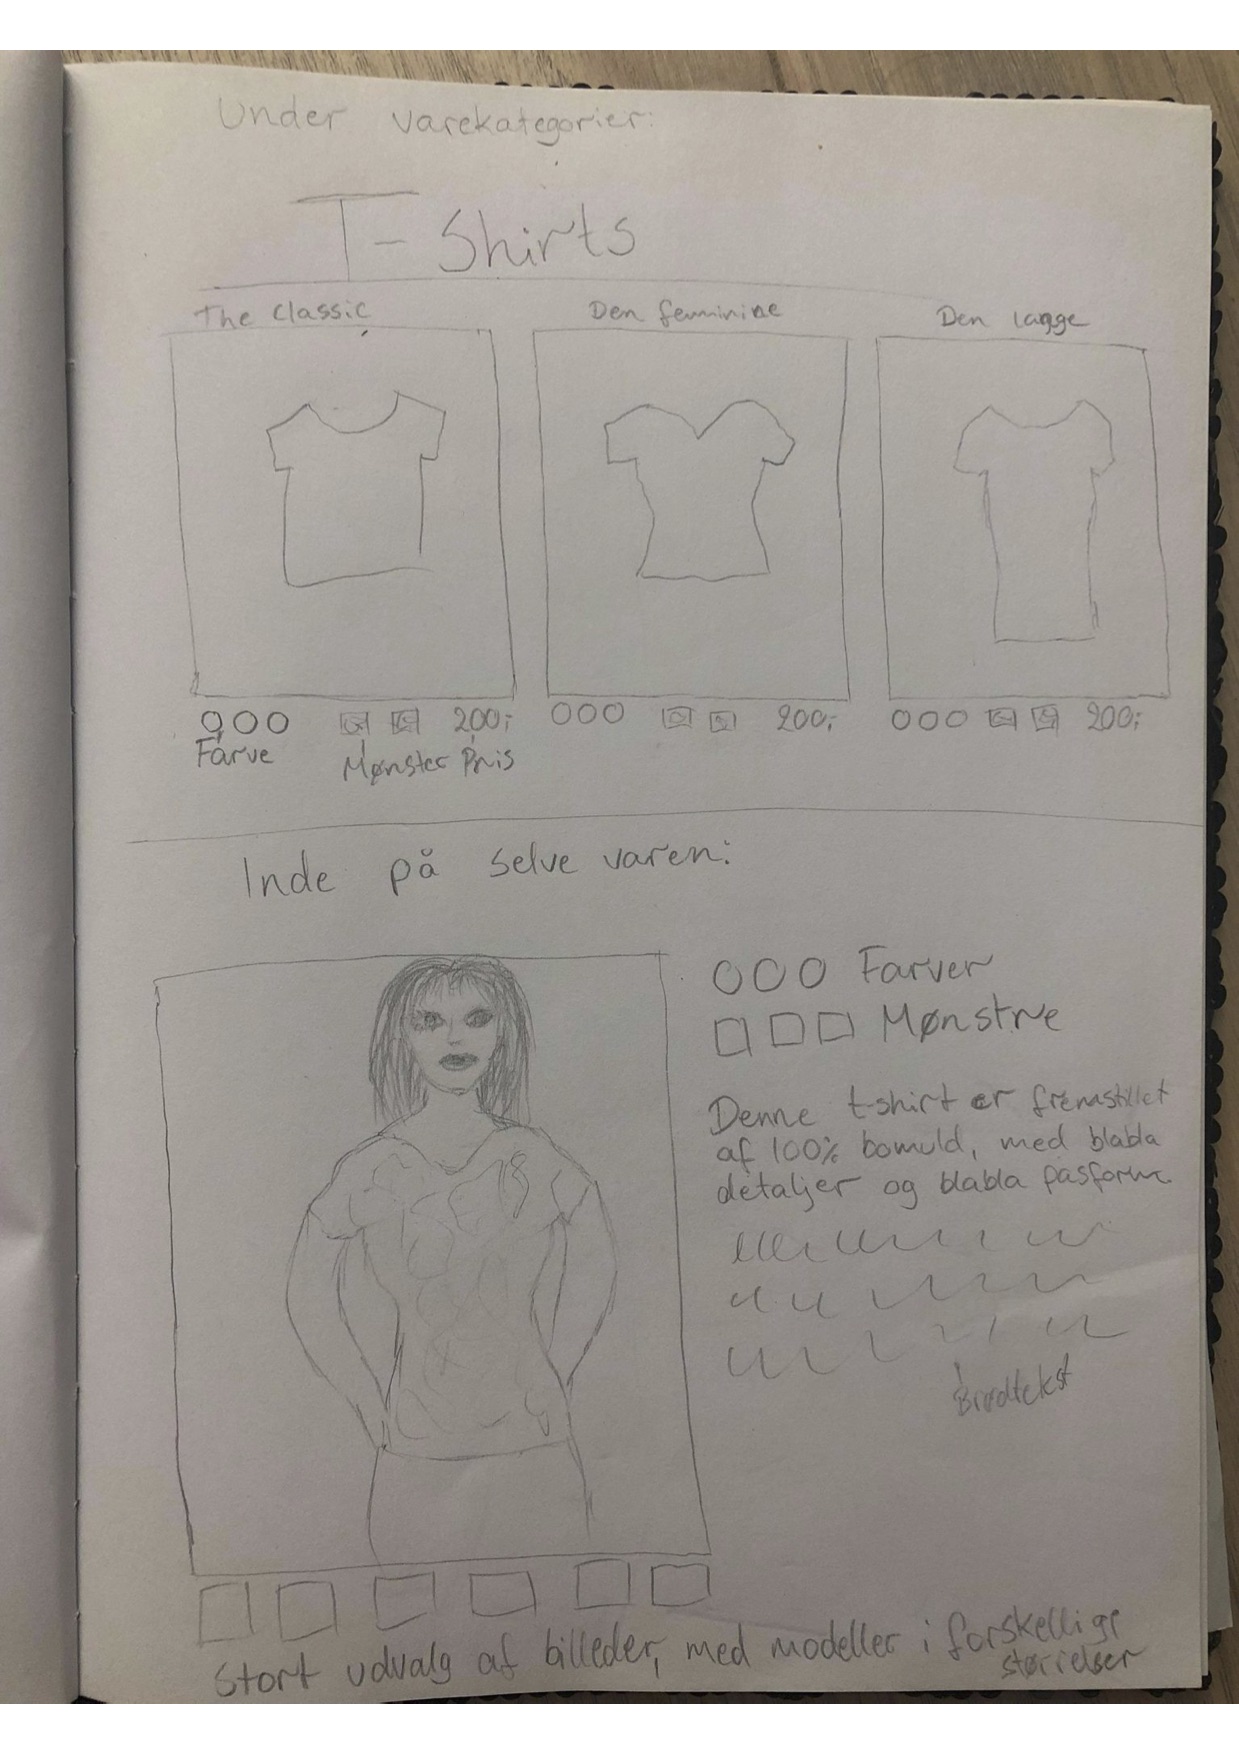 Under varekategorier:
T-Shirts
The Classic
Den feminine
Den lagge
200,-
200,-
200,-
Farve
Mønster
Pris
Inde på selve varen:
Farver
Mønstre
Denne t-shirt er fremstillet
af 100% bomuld, med blabla
detaljer og blabla pasform.
Brødtekst
Stort udvalg af billeder, med modeller i forskellige
størrelser